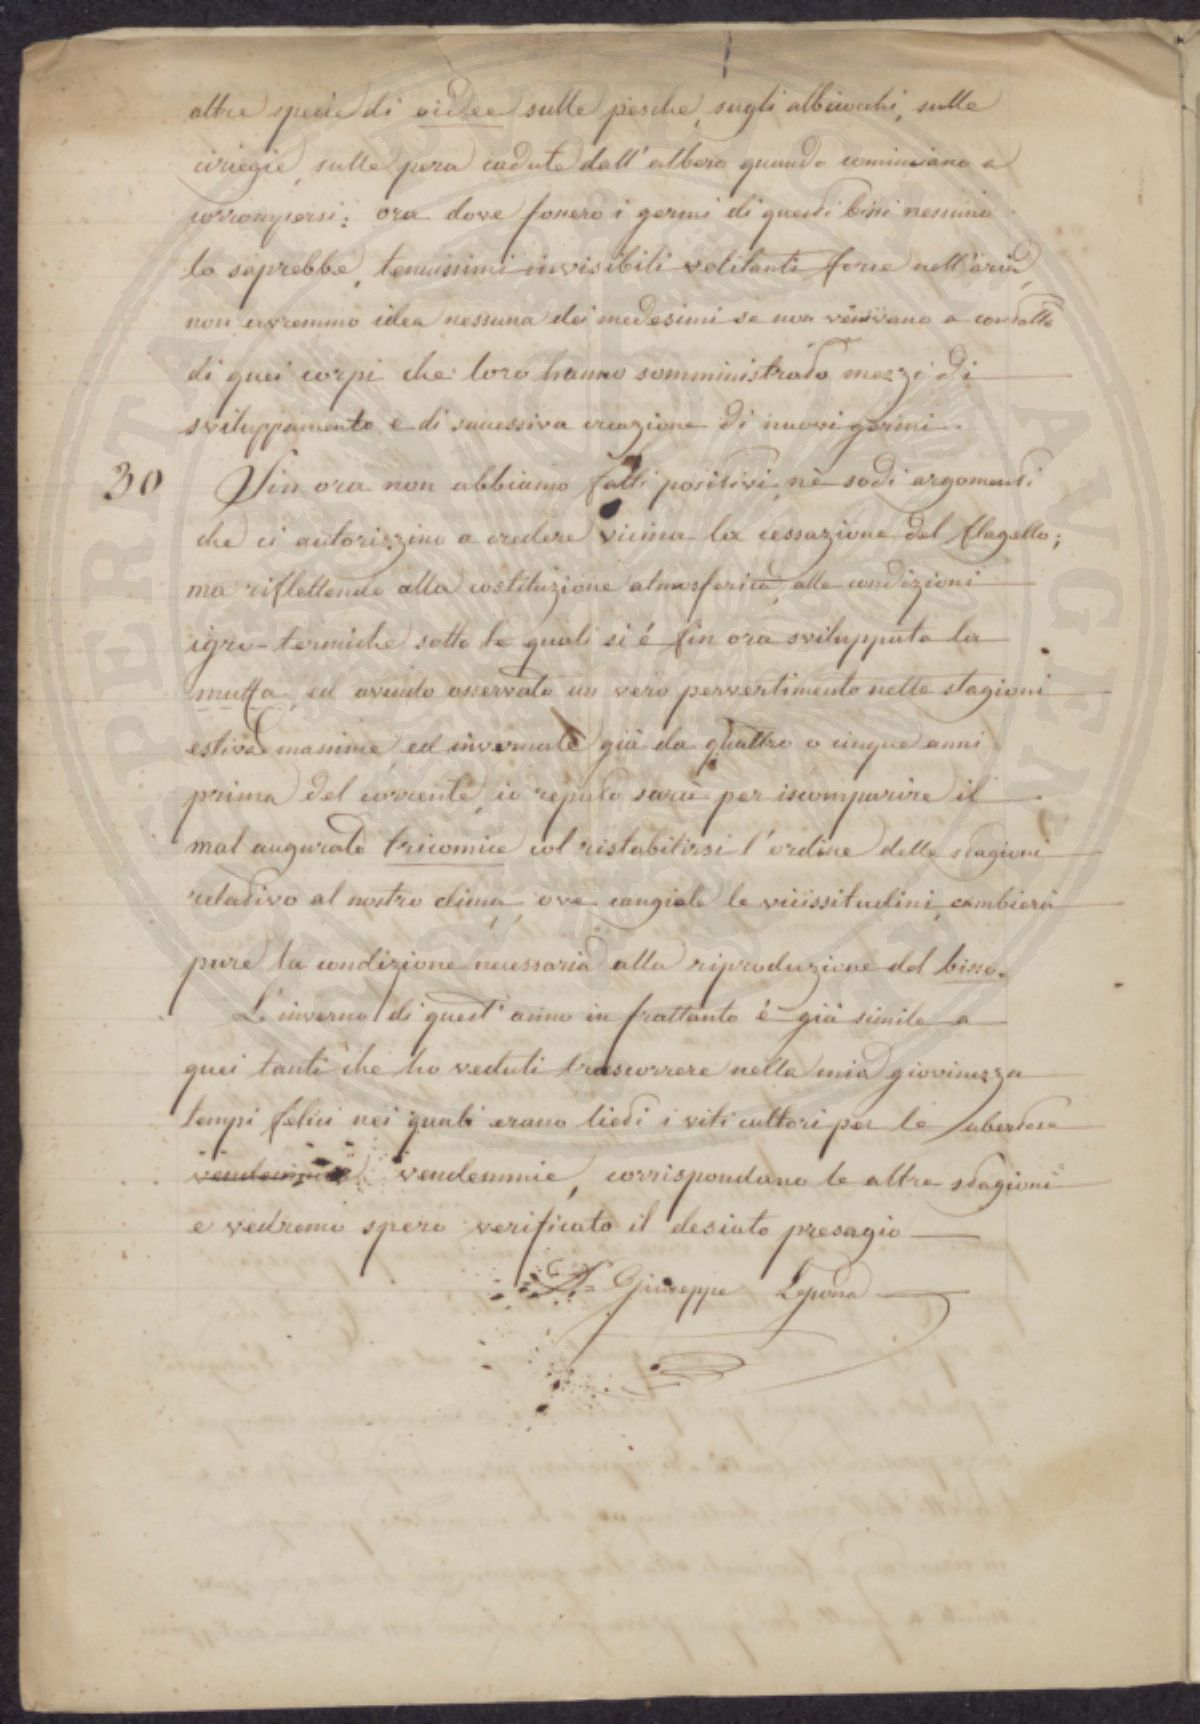 altre specie di oidee sulle pesche, sugli albicocchi, sulle
ciriegie, sulle pera cadute dall'albero quando cominciano a
corrompersi: ora dove fossero i germi di questi bissi nessuno
lo saprebbe, tenuissimi invisibili volitanti forse nell'aria,
non avremmo idea nessuna dei medesimi se non venivano a contatto
di quei corpi che loro hanno somministrato mezzi di
sviluppamento e di successiva creazione di nuovi germi.
30 Sin ora non abbiamo fatti positivi, nè sodi argomenti
che ci autorizzino a credere vicina la cessazione del flagello;
ma riflettendo alla costituzione atmosferica, alle condizioni
igro-termiche sotto le quali si è fin ora sviluppata la
muffa, ed avendo osservato un vero pervertimento nelle stagioni
estiva massime, ed invernale già da quattro o cinque anni
prima del corrente, io reputo sarà per iscomparire il
mal augurato tricomice col ristabilirsi l'ordine delle stagioni
relativo al nostro clima, ove cangiate le vicissitudini, cambierà
pure la condizione necessaria alla riproduzione del bisso.
L'inverno di quest'anno in frattanto è già simile a
quei tanti che ho veduti trascorrere nella mia giovinezza
tempi felici nei quali erano lieti i viticultori per le ubertose
vendemmie vendemmie, corrispondano le altre stagioni
e vedremo spero verificato il desiato presagio
Giuseppe
SPERITAS ET AUGENT